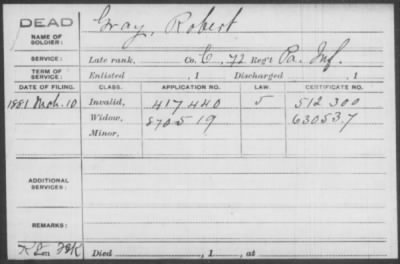 DEAD
Gray, Robert
NAME OF SOLDIER:
SERVICE: Late rank, Co. C, 72 Reg't Pa. Inf.
TERM OF SERVICE: Enlisted , 1 Discharged , 1
DATE OF FILING. CLASS. APPLICATION NO. LAW. CERTIFICATE NO.
1881 Mch. 10 Invalid, 417440 5 512300
Widow, 870519 630537
Minor,
ADDITIONAL SERVICES:
REMARKS:
Died , 1 , at